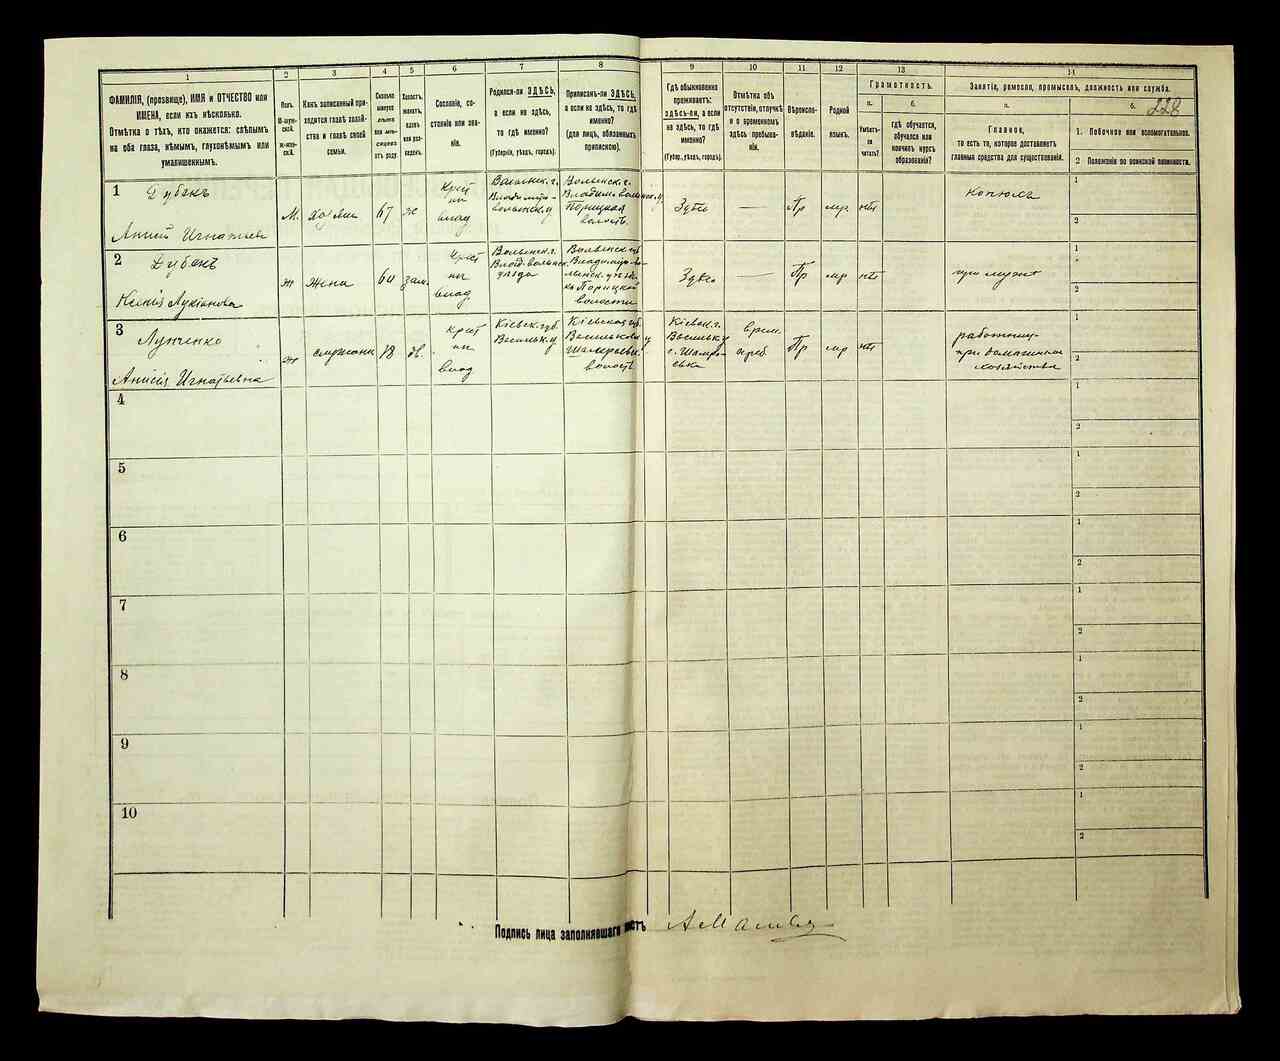 1
2
3
4
5
6
7
8
9
10
11
12
13
14
ФАМИЛІЯ, (прозвище), ИМЯ и ОТЧЕСТВО или
ИМЕНА, если ихъ нѣсколько.
Отмѣтка о тѣхъ, кто окажется: слѣпымъ
на оба глаза, нѣмымъ, глухонѣмымъ или
умалишеннымъ.
Полъ
М-муж-
ской.
Ж-жен-
скій.
Какъ записанный при-
ходится главѣ хозяй-
ства и главѣ своей
семьи.
Сколько
минуло
лѣтъ
или мѣ-
сяцевъ
отъ роду
Холостъ,
женатъ,
вдовъ
или раз-
веденъ.
Сословіе, со-
стояніе или зва-
ніе.
Родился-ли ЗДѢСЬ,
а если не здѣсь,
то гдѣ именно?
(Губернія, уѣздъ, городъ).
Приписанъ-ли ЗДѢСЬ,
а если не здѣсь, то гдѣ
именно?
(для лицъ, обязанныхъ
припискою).
Гдѣ обыкновенно
проживаетъ:
здѣсь-ли, а если
не здѣсь, то гдѣ
именно?
(Губер., уѣздъ, городъ).
Отмѣтка объ
отсутствіи, отлучкѣ
и о временномъ
здѣсь пребыва-
ніи.
Вѣроиспо-
вѣданіе.
Родной
языкъ.
Грамотность.
а.
б.
Умѣетъ-
ли
читать?
гдѣ обучается,
обучался или
кончилъ курсъ
образованія?
Занятіе, ремесло, промыселъ, должность или служба.
а.
б.
228
Главное,
то есть то, которое доставляетъ
главныя средства для существованія.
1. Побочное или вспомогательное.
2 Положеніе по воинской повинности.
1
Дубакъ
М.
Хозяин
67
ж
Крест
вла﻿д
Волынск. г.
Владиміро-
волынск. у
Волынск. г.
Владим. волынск. у
Порицкая
волость.
Здѣсь
—
Пр
мр
нѣт
1
2
Игнатьев
2
Дубакъ
ж
жена
60
зам.
Крест
влад
Волынск. г.
Влад. волынск.
уѣзда
Волынск. губ
Порицкой
волости
Здѣсь
—
Пр
мр
нѣт
при мужѣ
1
2
Ксенія Лукіанова
3
ж
18
дѣ.
Крест
влад
Кіевск. губ.
Васильк. у
Кіевской губ.
волость
Кіевск. г.
Васильк. у
врем.
преб.
Пр
мр
нѣт
при домашнем
хозяйстве
1
2
Анисія Игнатьевна
4
1
2
5
1
2
6
1
2
7
1
2
8
1
2
9
1
2
10
1
2
Подпись лица заполнявшаго листъ